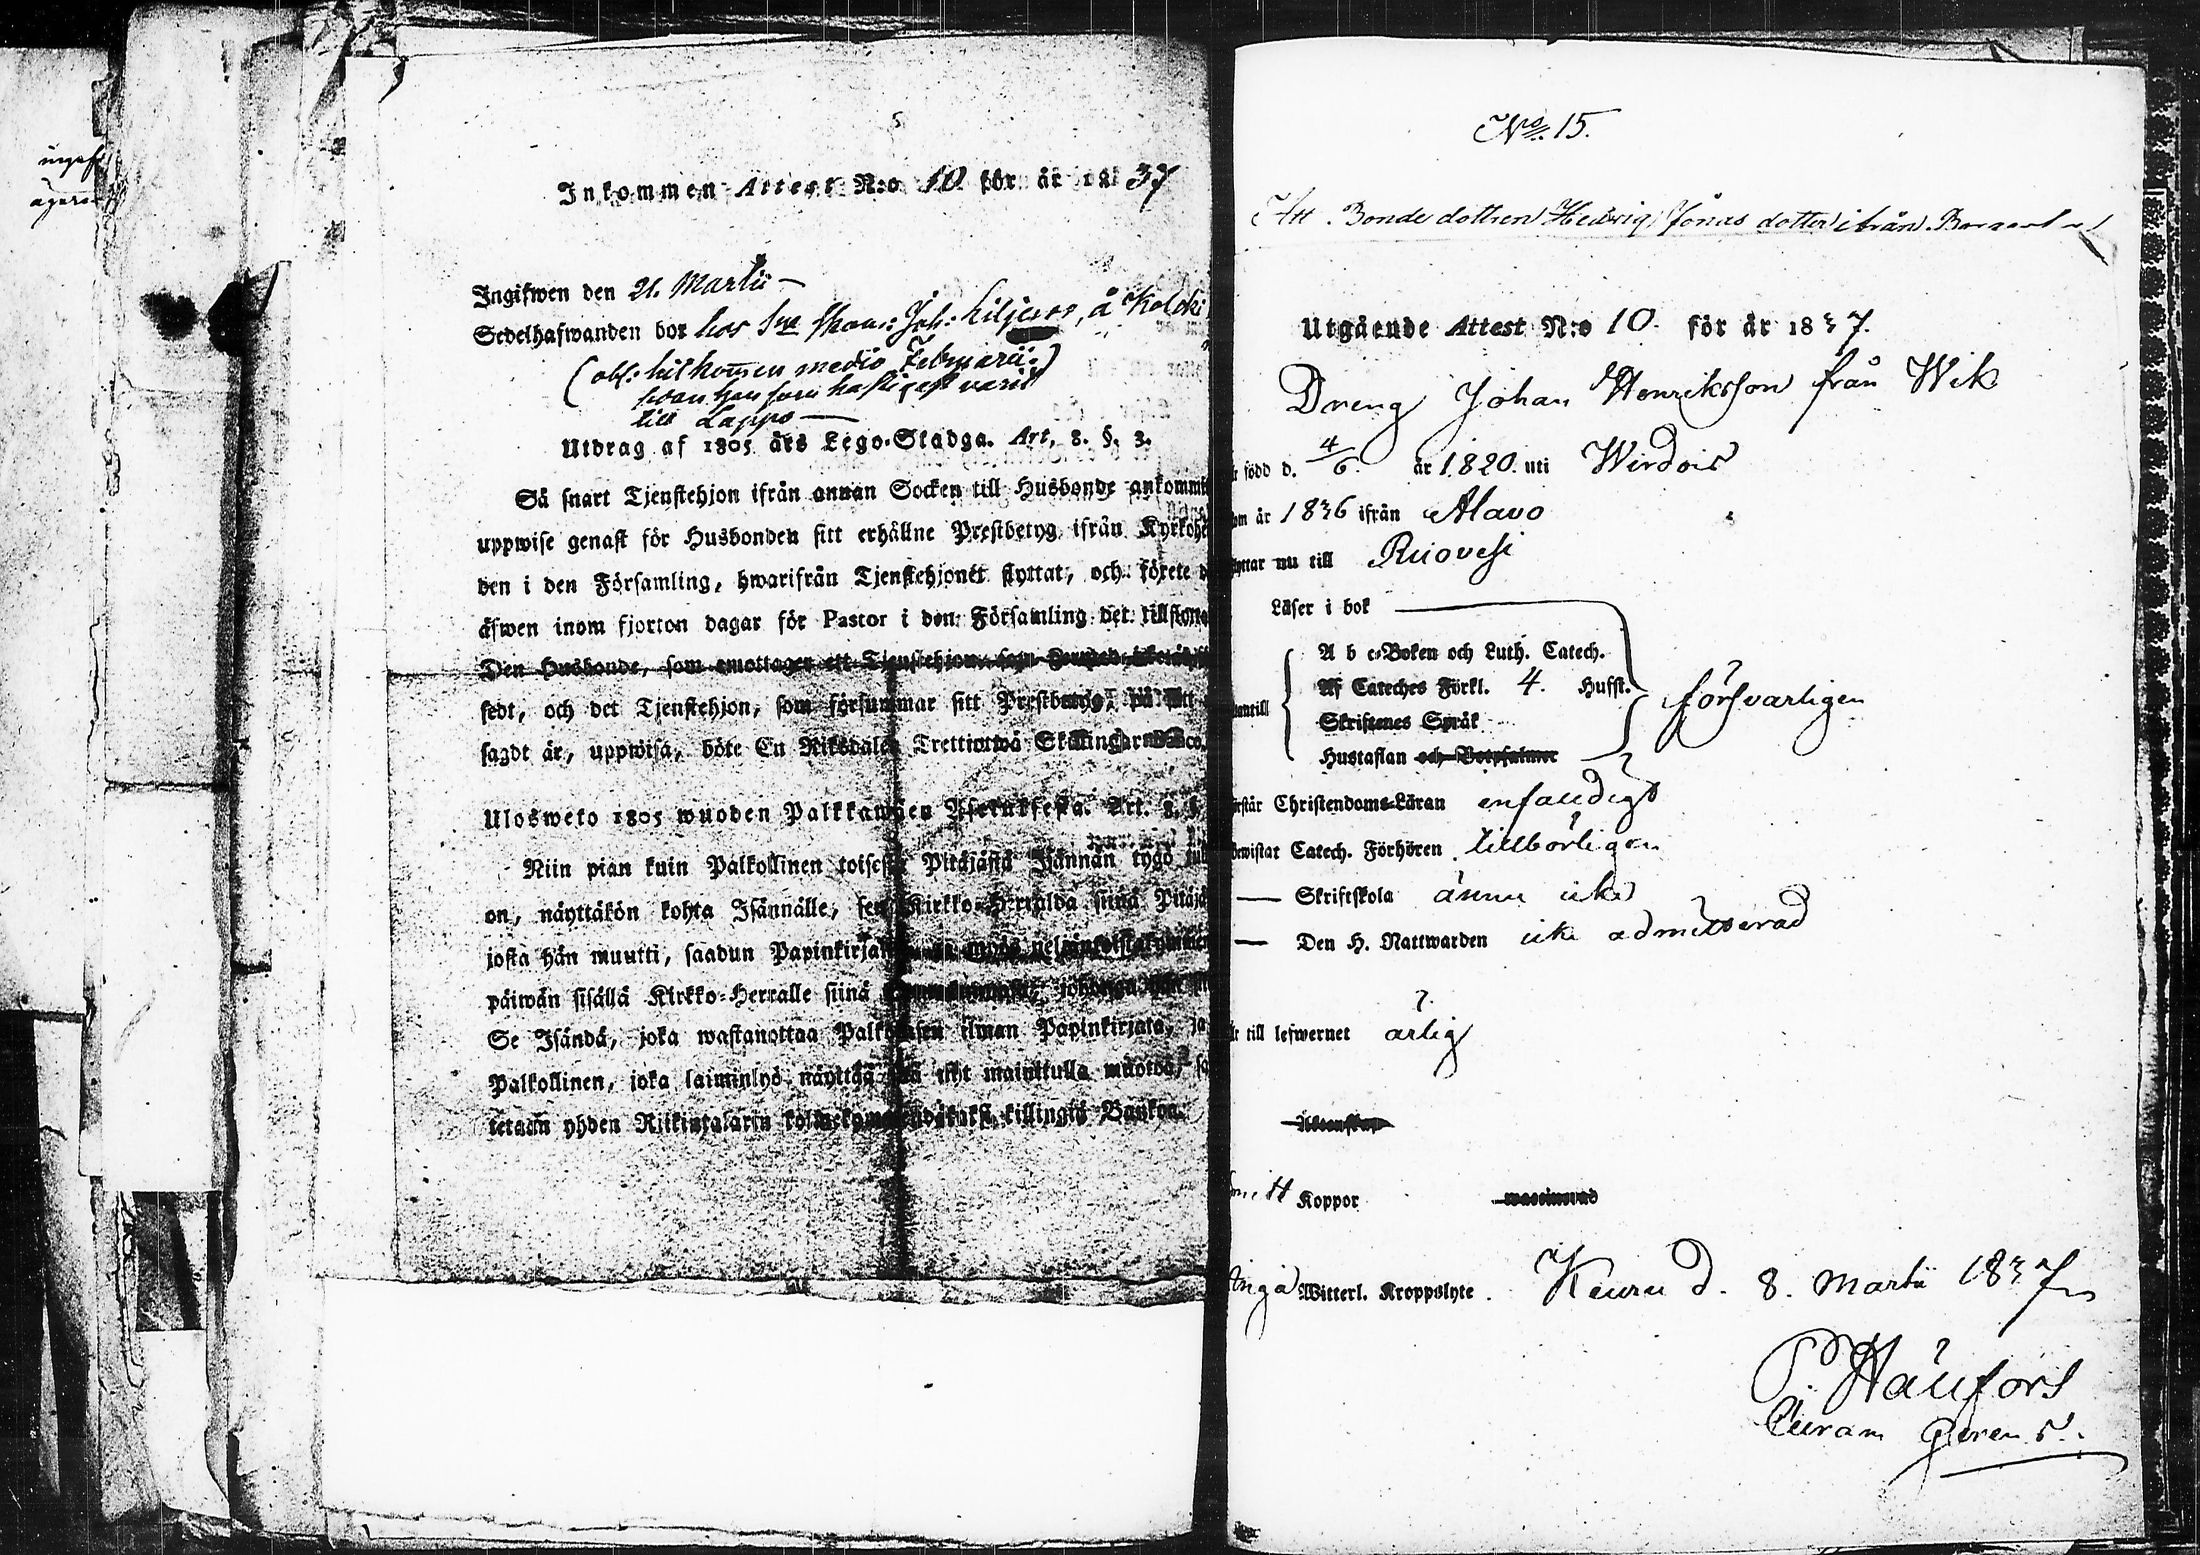 Inkommen Attest N:o 10 för år 1837
Ingifwen den 21. Martii —
Sedelhafwanden bor hos Joh: Liljeroos, å Kolcki
(obs: hitkommen medio Februarii:)
till Lappo —
Utdrag af 1805 års Lego-Stadga. Art. 8. §. 3.
Så snart Tjenstehjon ifrån annan Socken till Husbonde ankommit
uppwise genast för Husbonden sitt erhållne Prestbetyg ifrån Kyrkohe
den i den Församling, hwarifrån Tjenstehjonet flyttat, och förete d
äfwen inom fjorton dagar för Pastor i den Församling det tillflytta
Den Husbonde, som emottager ett Tjenstehjon
sedt, och det Tjenstehjon, som försummar sitt Prestbetyg, på sätt
sagdt är, uppwisa, böte En Riksdaler Trettiotwå Skillingar Banco.
Ulosweto 1805 wuoden Palkkawäen Asetuksesta. Art. 8. §
Niin pian kuin Palkollinen toisesta Pitäjästä Isännän tygö tul
on, näyttäkön kohta Isännälle, sen Kirkko-Herralda siinä Pitäjä
josta hän muutti, saadun Papinkirjan
päiwän sisällä Kirkko-Herralle siinä
Se Isändä, joka wastanottaa Palkollisen ilman Papinkirjata, ja
Palkollinen, joka laiminlyö näyttää sen itzt mainitulla muotoa, sa
tetaan yhden Rikintalarin kolmekymmendäkaksi killingiä Bankoa.
No. 15.
Att. Bonde dottren Hedwig Jonas dotter ifrån
Utgående Attest N:o 10. för år 1837.
Dreng Johan Henriksson från Wik
r född d. 4/6. år 1820. uti Wirdois
om år 1836 ifrån Alavo
yttar nu till Ruovesi
Läser i bok —
A b c-Boken och Luth. Catech.
Af Cateches Förkl. 4. Hufst.
försvarligen
antill
Skriftenes Språk
Hustaflan och Botpsalmer
rstår Christendoms-Läran enfaldigt
bewistat Catech. Förhören tillbörligen
— Skriftskola ännu icke
— Den H. Nattwarden icke admitterad
är till lefwernet ärlig
Äktenskap
haft Koppor waccinerad
Inga Witterl. Kroppslyte. Keuru d. 8. Martii 1837
P. Hällfors
Curam Gerens.